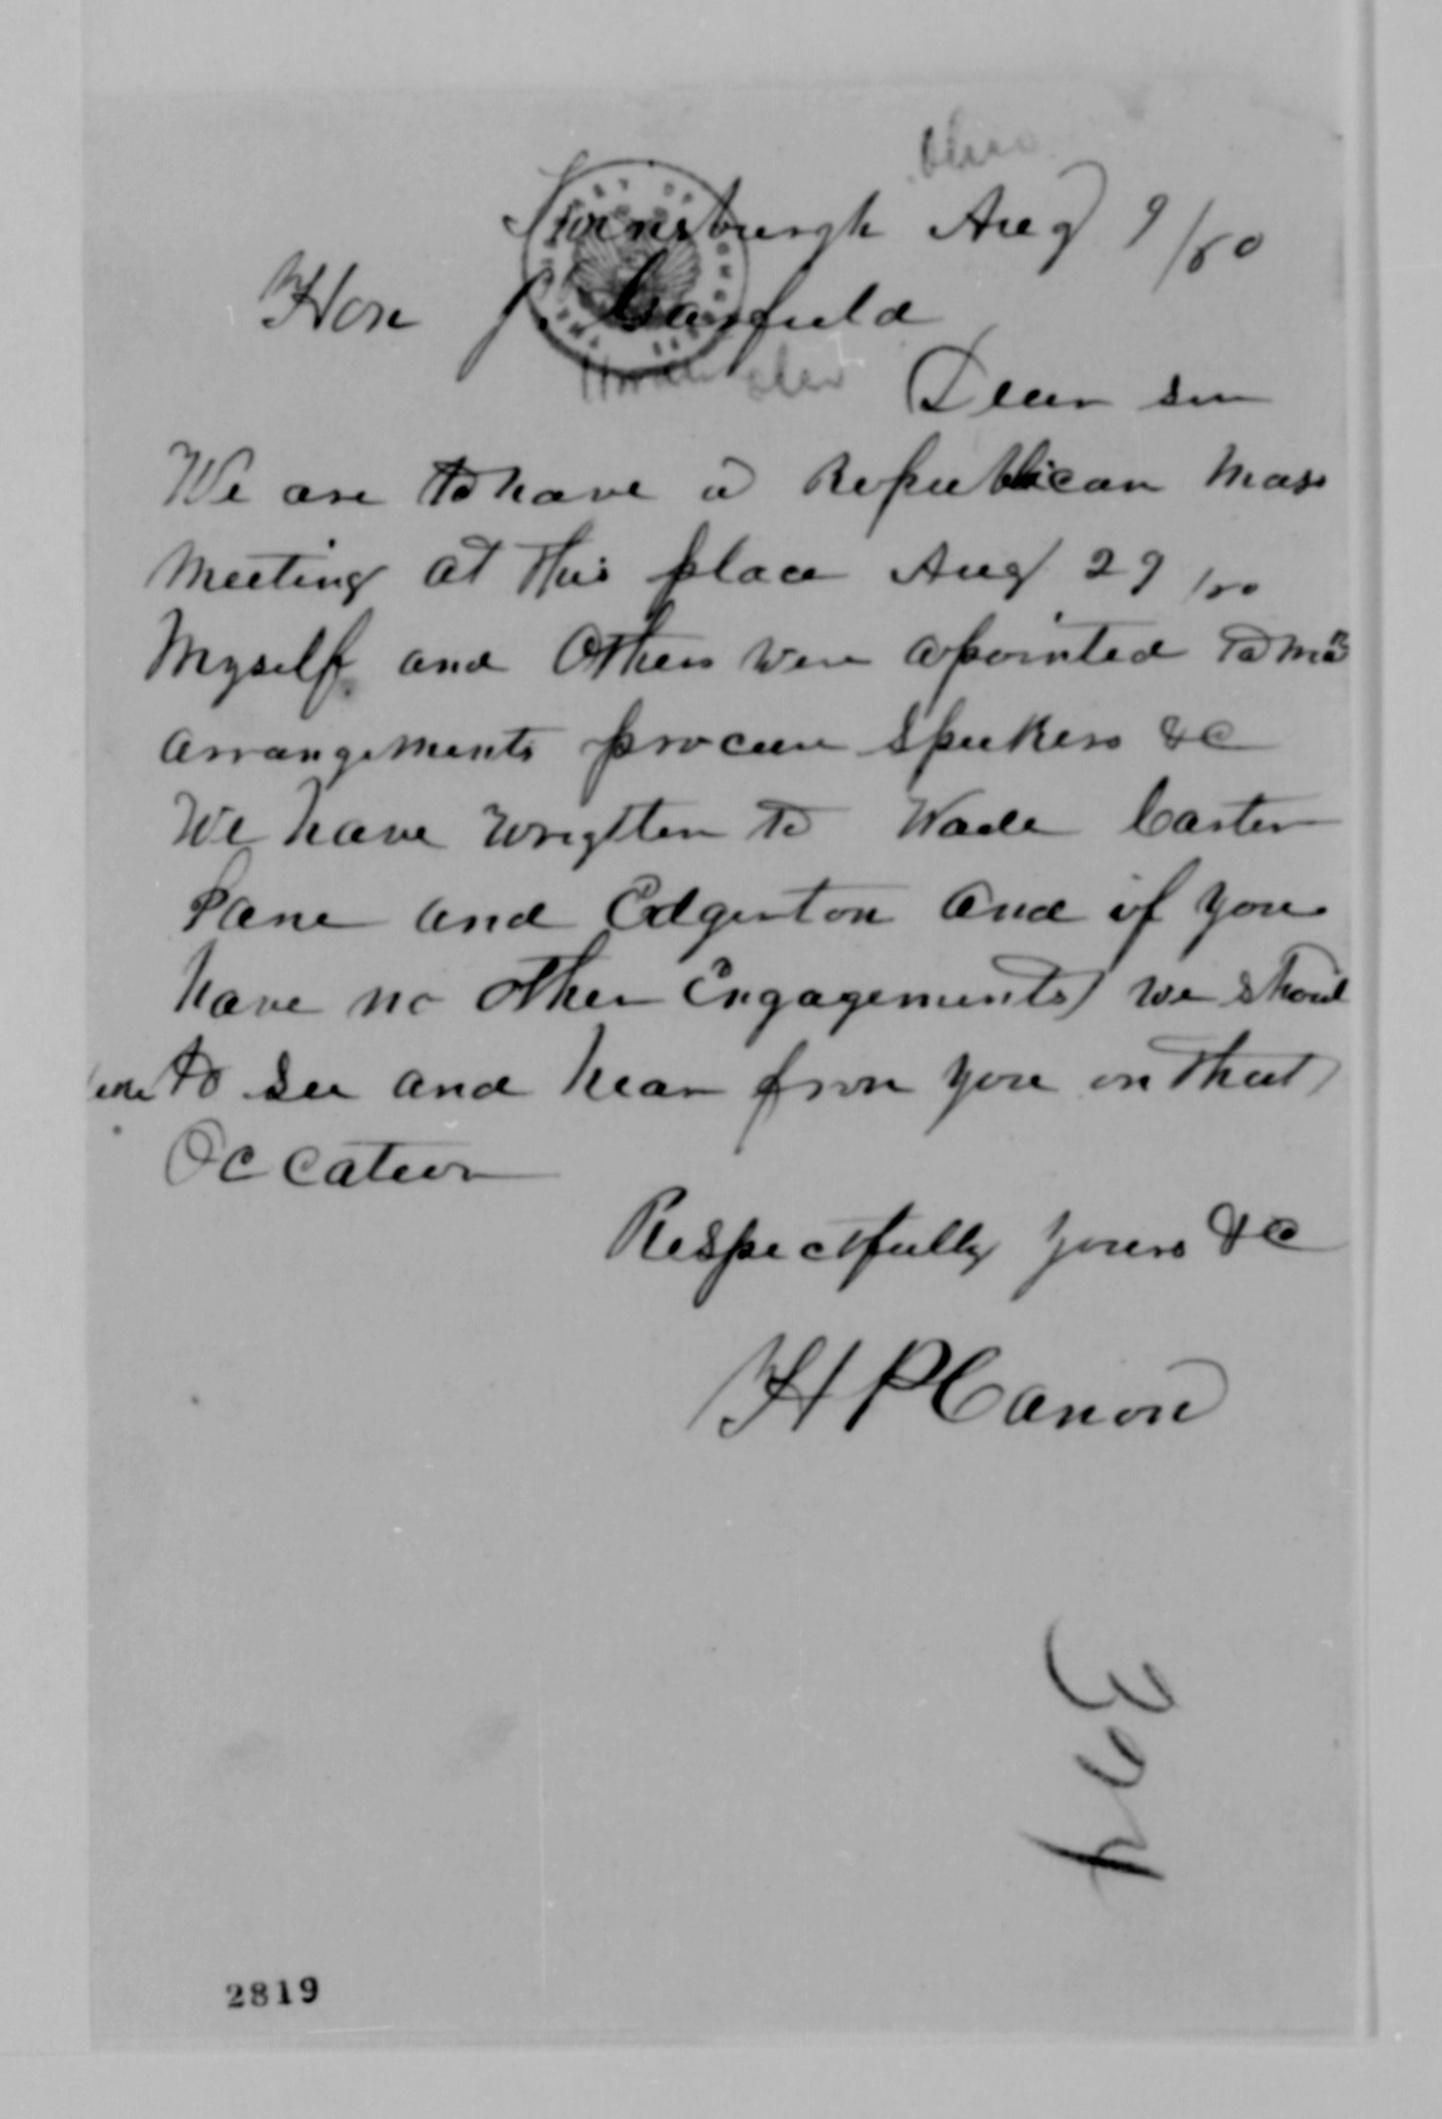 Ohio
Twinsburgh Aug 9/80
Hon J. Garfield
Dear sir
We are to have a Republican Mass
Meeting at this place Aug 29 /80
Myself and Others were apointed to
arrangements procure Speekers &c
We have wrigtten to Wade Carter
Pane and Edgerton and if you
have no other Engagements we shoul
like to see and hear from you on that
Occation
Respectfully yours &c
H P Canon
394
2819